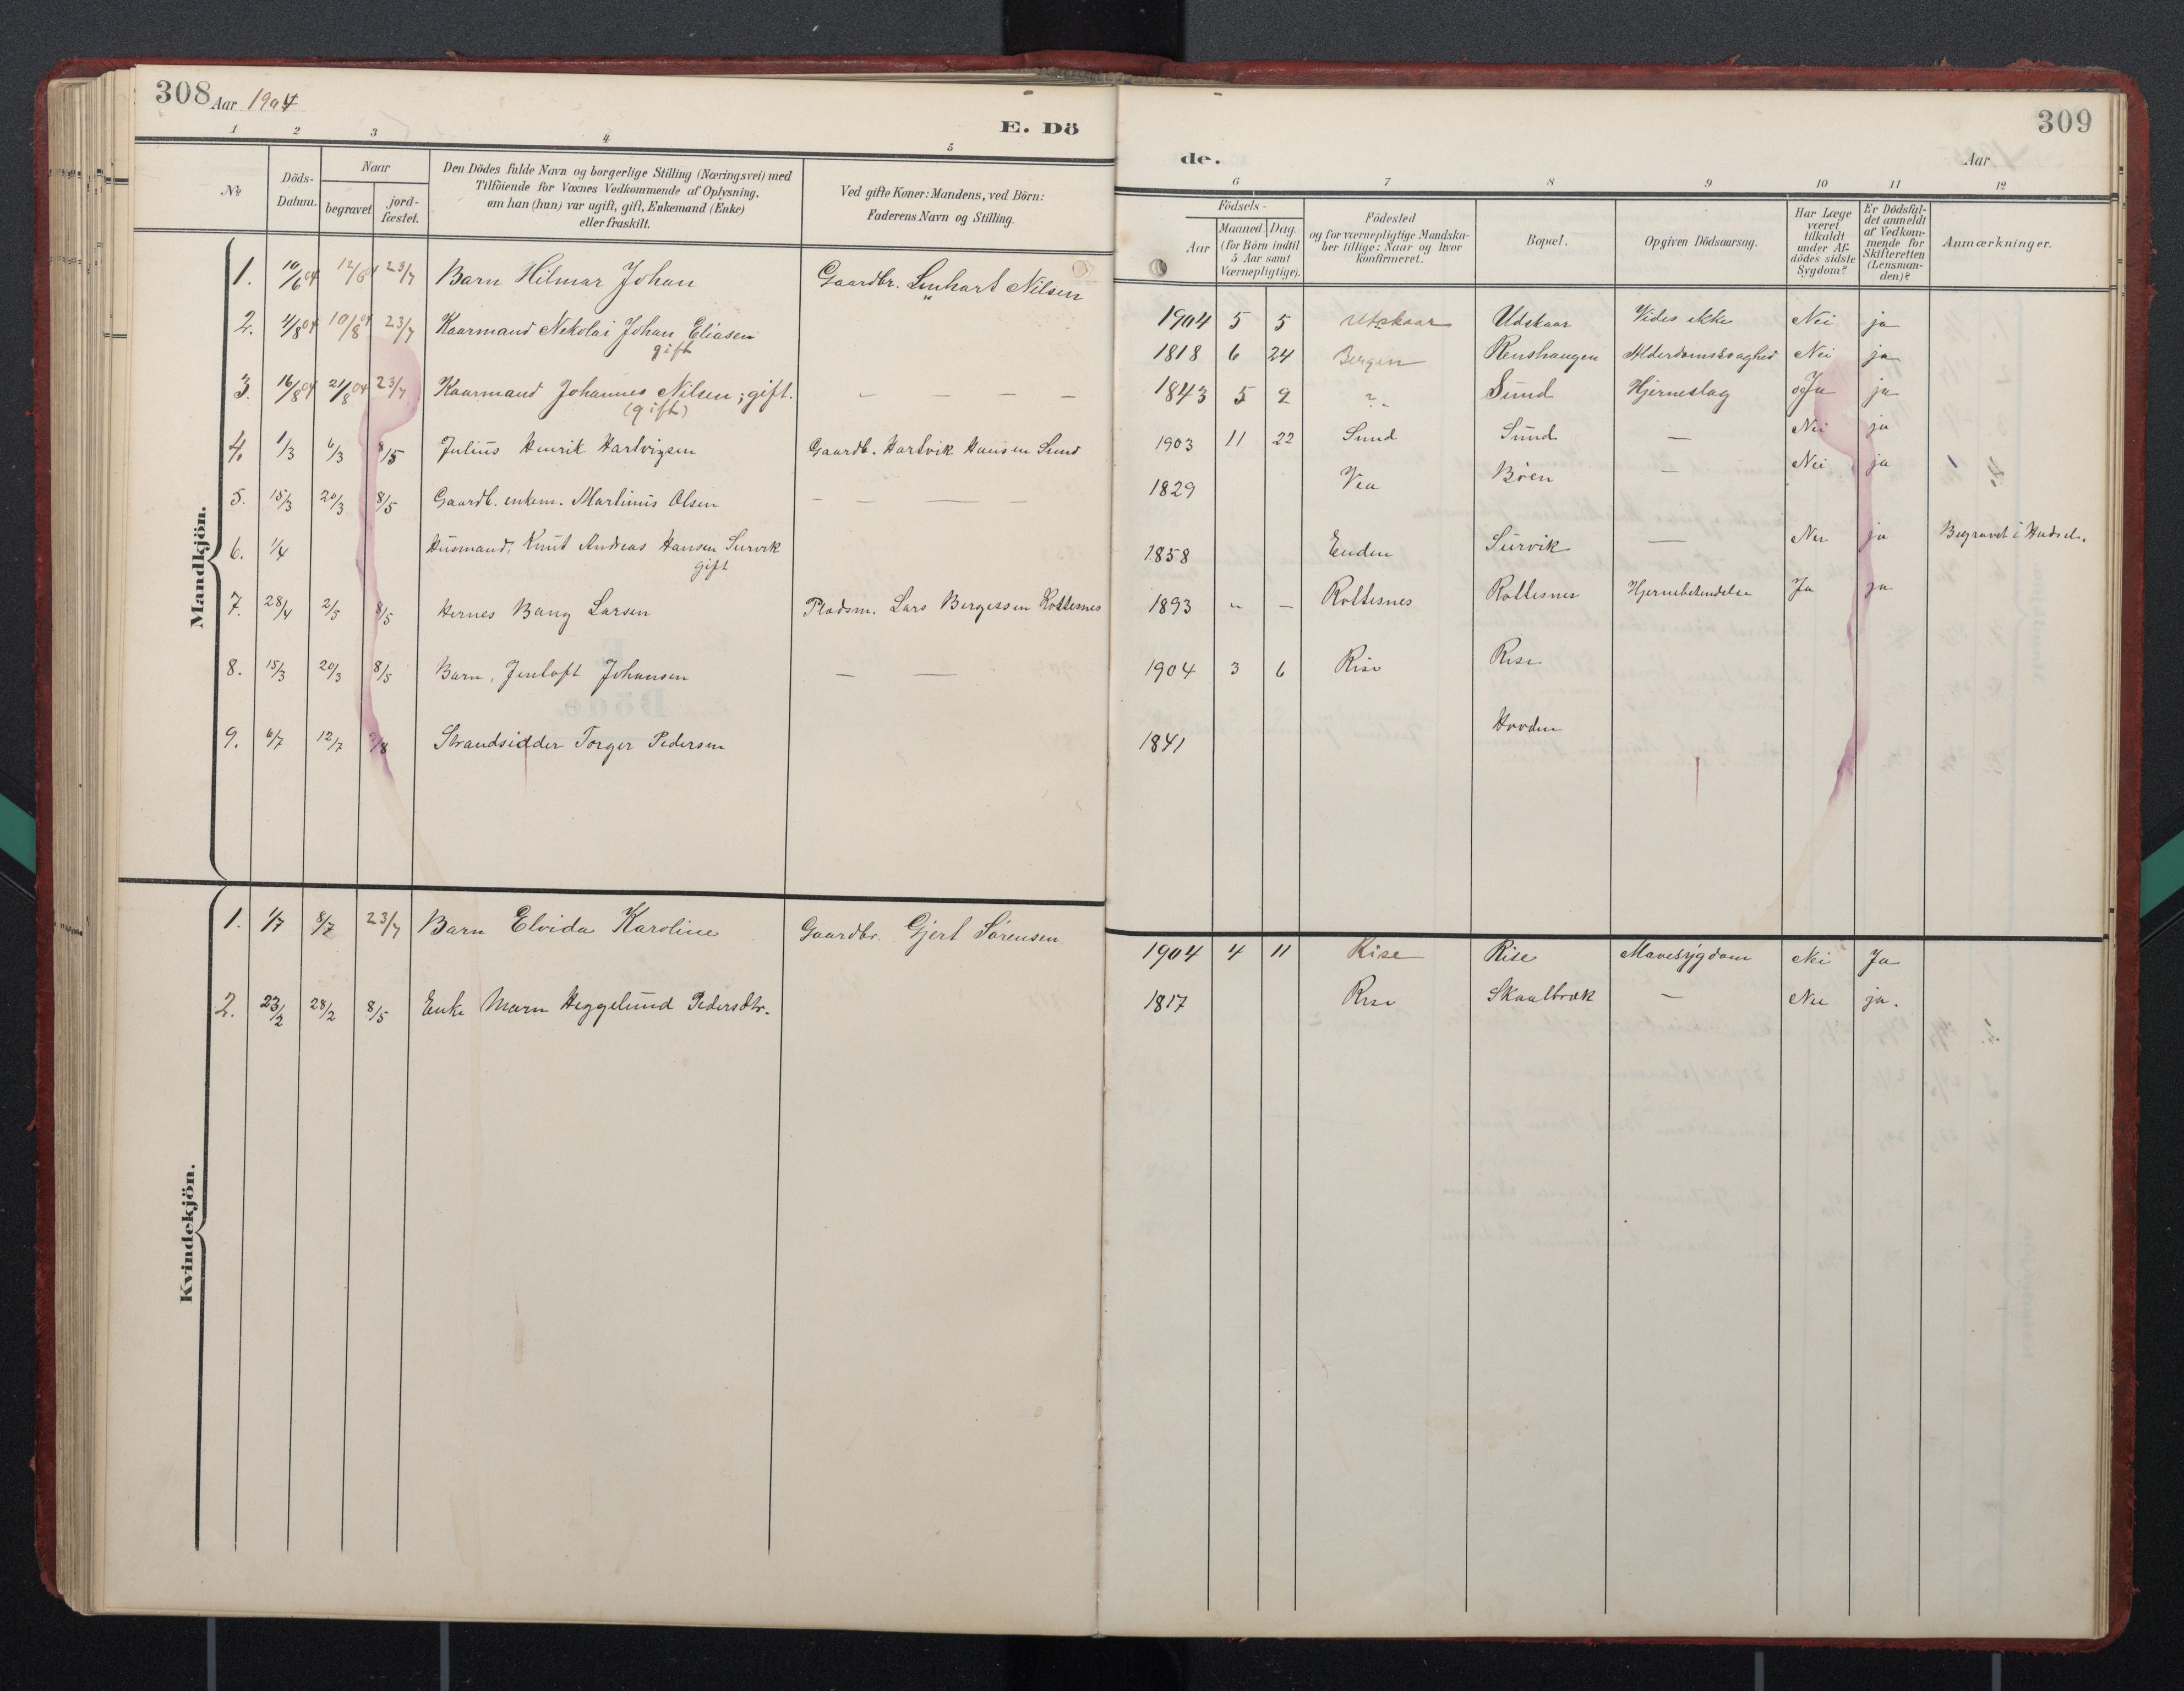 308 Aar 1904
E. Dö
1 2 3 4 5
No
Döds-Datum.
Naar
begravet jord-fæstet.
Den Dödes fulde Navn og borgerlige Stilling (Næringsvei) med
Tilföiende for Voxnes Vedkommende af Oplysning,
om han (hun) var ugift, gift, Enkemand (Enke)
eller fraskilt.
Ved gifte Koner: Mandens, ved Börn:
Faderens Navn og Stilling.
Mandkjön.
1. 10/6 04 12/6 04 23/7 Barn Hilmar Johan Gaardbr. Lenhart Nilsen
2. 4/8 04 10/8 04 23/7 Kaarmand Nekolai Johan Eliasen
gift
3. 16/8 04 21/8 04 23/7 Kaarmand Johannes Nilsen; gift. — — — —
(gift)
4. 1/3 6/3 8/5 Julius Henrik Hartvigsen Gaardb. Hartvik Hansen Sund
5. 15/3 20/3 8/5 Gaardb. enkem. Martinus Olsen — — — —
6. 1/4 Husmand, Knut Andreas Hansen Survik
gift
7. 28/4 2/5 8/5 Hernes Bang Larsen Pladsm. Lars Bergessen Rottesnes
8. 15/3 20/3 8/5 Barn, Jenloft Johansen — —
9. 6/7 12/7 /8 Strandsidder Torger Pedersen
Kvindekjön.
1. 1/7 8/7 23/7 Barn Elvida Karoline Gaardbr. Gjert Sörensen
2. 23/2 28/2 8/5 Enke Maren Heggelund Pedersdtr.
309
de.
Aar
6 7 8 9 10 11 12
Födsels-
Aar
Maaned. Dag.
(for Börn indtil
5 Aar samt
Værnepligtige).
Födested
og for værnepligtige Mandska-
ber tillige: Naar og hvor
konfirmeret.
Bopæl.
Opgiven Dödsaarsag.
Har Læge
været
tilkaldt
under Af-
dödes sidste
Sygdom?
Er Dödsfal-
det anmeldt
af Vedkom-
mende for
Skifteretten
(Lensman-
den)?
Anmærkninger.
1904 5 5 Utskaar Udskaar Vides ikke Nei ja
1818 6 24 Bergen Renshaugen Alderdomssvaghed Nei ja
1843 5 2 ? Sund Hjerneslag Ja ja
1903 11 22 Sund Sund — Nei ja
1829 Vea Böen — Nei ja
1858 Enden Survik — Nei ja Begravet i Hadsel.
1893 " — Rottesnes Rottesnes Hjernebetendelse Ja ja
1904 3 6 Rise Rise
1841 Hovden
1904 4 11 Rise Rise Mavesygdom Nei Ja
1817 Rise Skaalbræk — Nei ja.